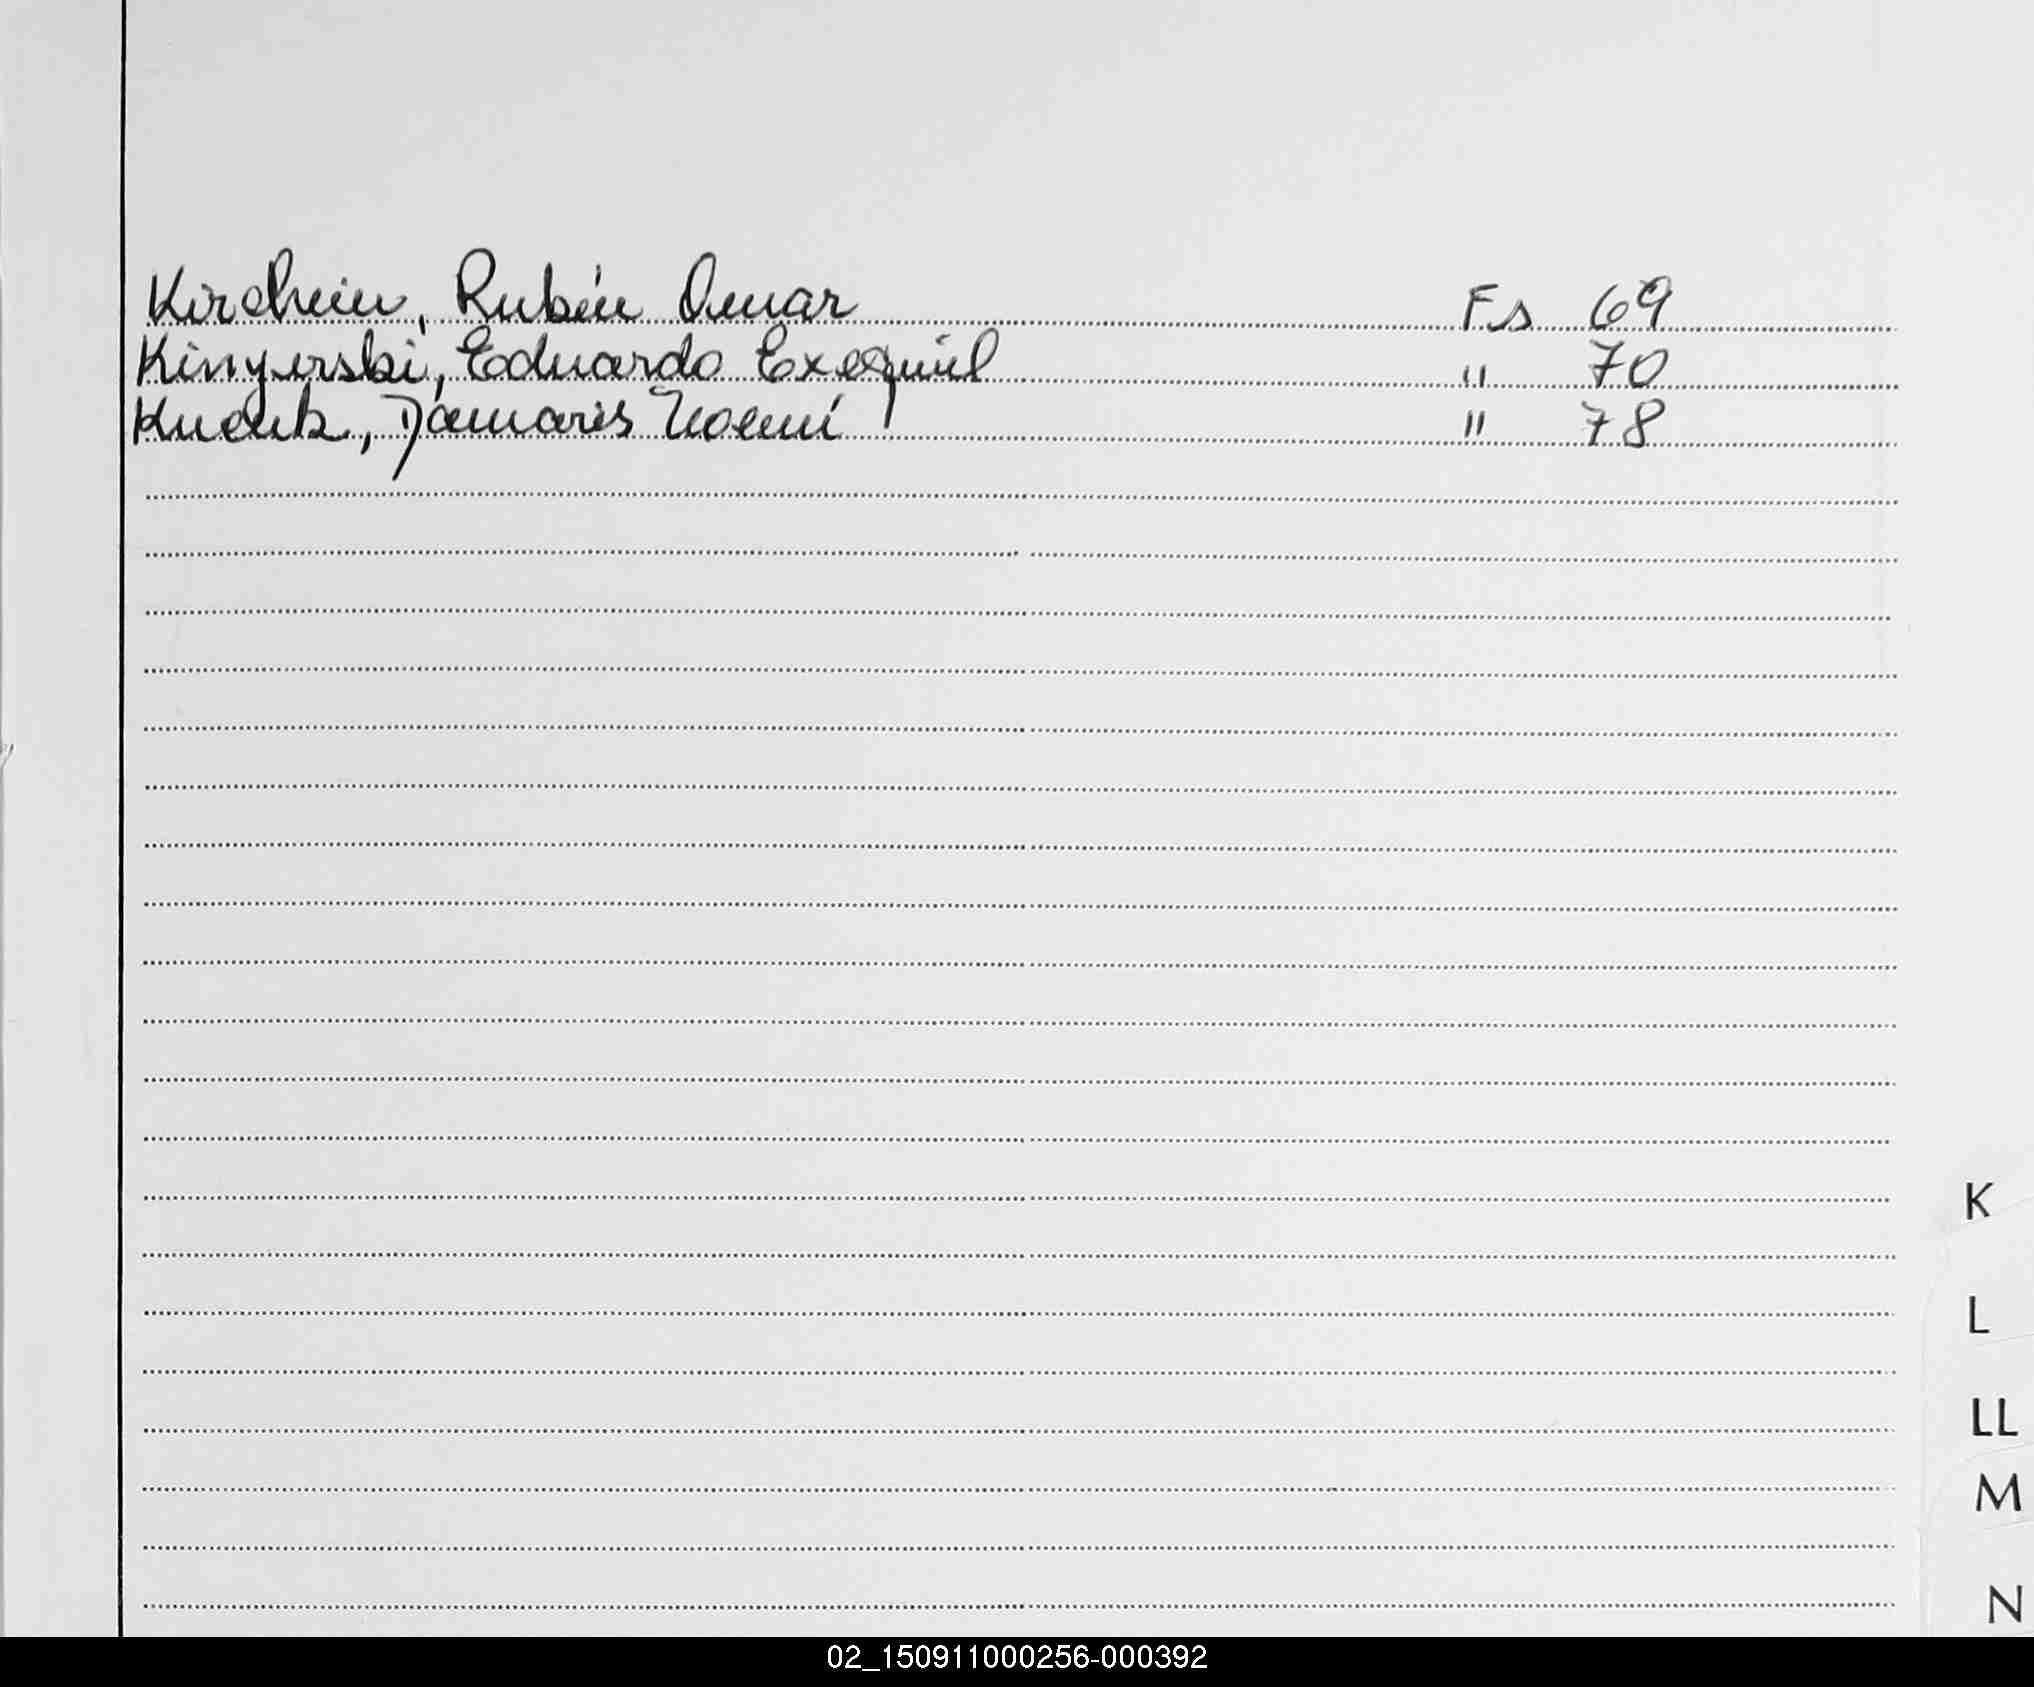 Kirchein, Rubén Omar Fs 69
Kinyerski, Eduardo Exequiel " 70
Damaris Noemí " 78
K
L
LL
M
N
02_150911000256-000392